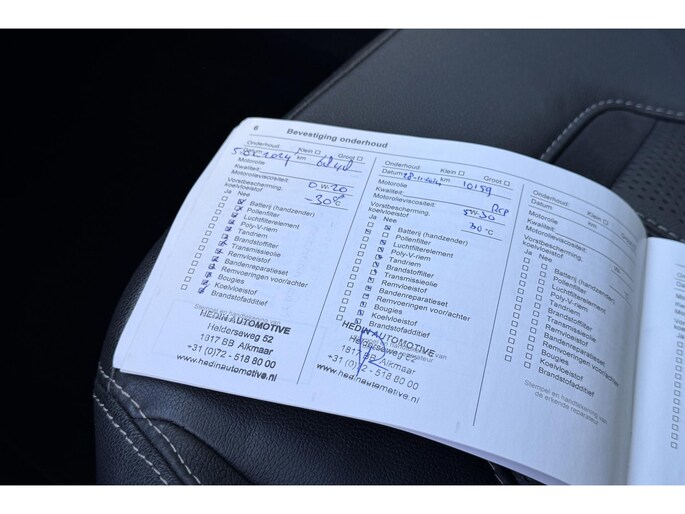 6
Bevestiging onderhoud
Onderhoud: Klein Groot
km
Motorolie
Kwaliteit:
Motorolieviscositeit: 0W-20
Vorstbescherming.
koelvloeistof -30°C
Ja Nee
Batterij (handzender)
Pollenfilter
Luchtfilterelement
Poly-V-riem
Tandriem
Brandstoffilter
Transmissieolie
Remvloeistof
Bandenreparatieset
Remvoeringen voor/achter
Bougies
Koelvloeistof
Brandstofadditief
HEDIN AUTOMOTIVE
Helderseweg 52
1817 BB Alkmaar
+31 (0)72 - 518 80 00
www.hedinautomotive.nl
Onderhoud: Klein Groot
Datum: km 10159
Motorolie
Kwaliteit:
Motorolieviscositeit: 5W-30
Vorstbescherming.
koelvloeistof 30°C
Ja Nee
Batterij (handzender)
Pollenfilter
Luchtfilterelement
Poly-V-riem
Tandriem
Brandstoffilter
Transmissieolie
Remvloeistof
Bandenreparatieset
Remvoeringen voor/achter
Bougies
Koelvloeistof
Brandstofadditief
HEDIN AUTOMOTIVE
Helderseweg 52
1817 BB Alkmaar
+31 (0)72 - 518 80 00
www.hedinautomotive.nl
Onderhoud: Klein Groot
Datum: km
Motorolie
Kwaliteit:
Motorolieviscositeit:
Vorstbescherming.
koelvloeistof
Ja Nee
Batterij (handzender)
Pollenfilter
Luchtfilterelement
Poly-V-riem
Tandriem
Brandstoffilter
Transmissieolie
Remvloeistof
Bandenreparatieset
Remvoeringen voor/achter
Bougies
Koelvloeistof
Brandstofadditief
Stempel en handtekening van
de erkende reparateur